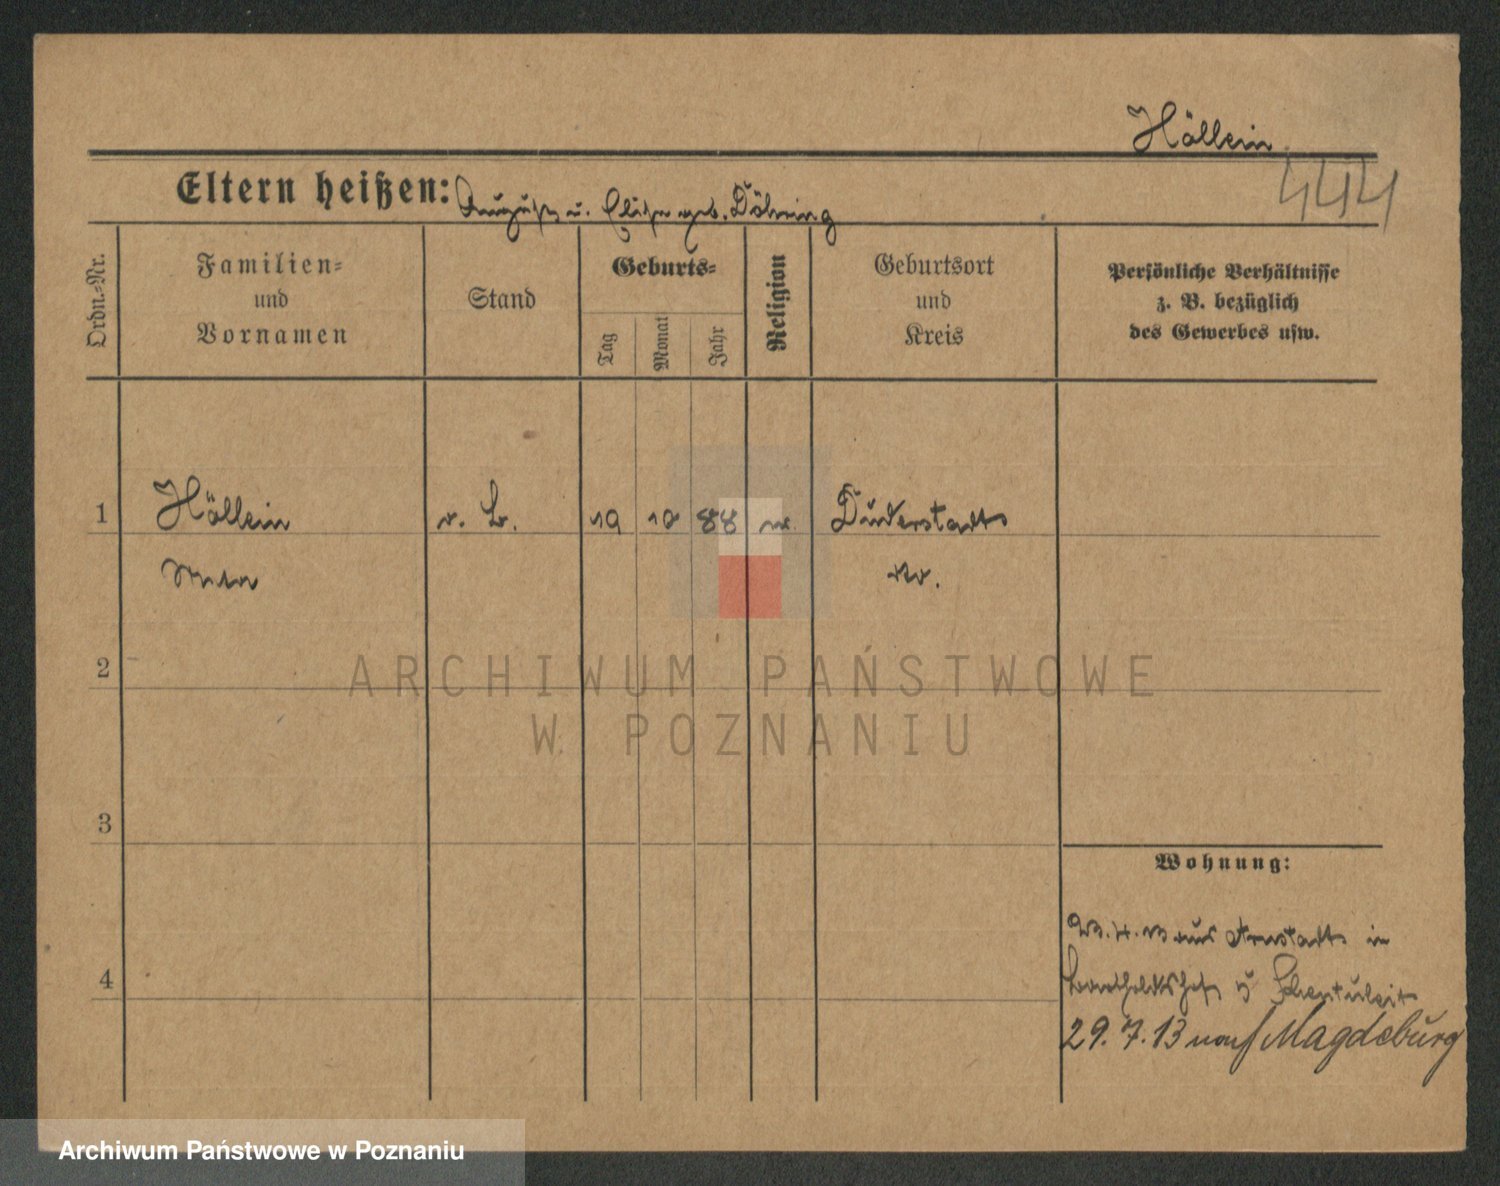 Höllein
444
Eltern heißen: August u. Elise geb. Döhring
Ordn.=Nr.
Familien=
und
Vornamen
Stand
Geburts=
Tag
Monat
Jahr
Religion
Geburtsort
und
Kreis
Persönliche Verhältnisse
z. B. bezüglich
des Gewerbes usw.
1
Höllein
o. B.
19
10
88
Duderstadt
2
3
4
Wohnung:
aus Arnstadt in
29. 7. 13 nach Magdeburg
ARCHIWUM PAŃSTWOWE
W POZNANIU
Archiwum Państwowe w Poznaniu